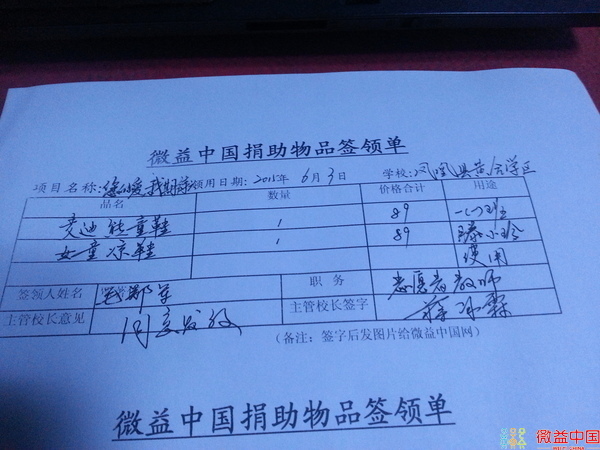 微益中国捐助物品签领单
项目名称: 您的爱 我期待 领用日期: 2015年 6月3日 学校: 凤凰县黄合学区
品名 数量 价格合计 用途
麦迪熊童鞋 1 89 一(一)班
女童凉鞋 1 89 滕小玲
使用
签领人姓名 职务 志愿者教师
主管校长意见 同意发放 主管校长签字
(备注: 签字后发图片给微益中国网)
微益中国捐助物品签领单
微益中国